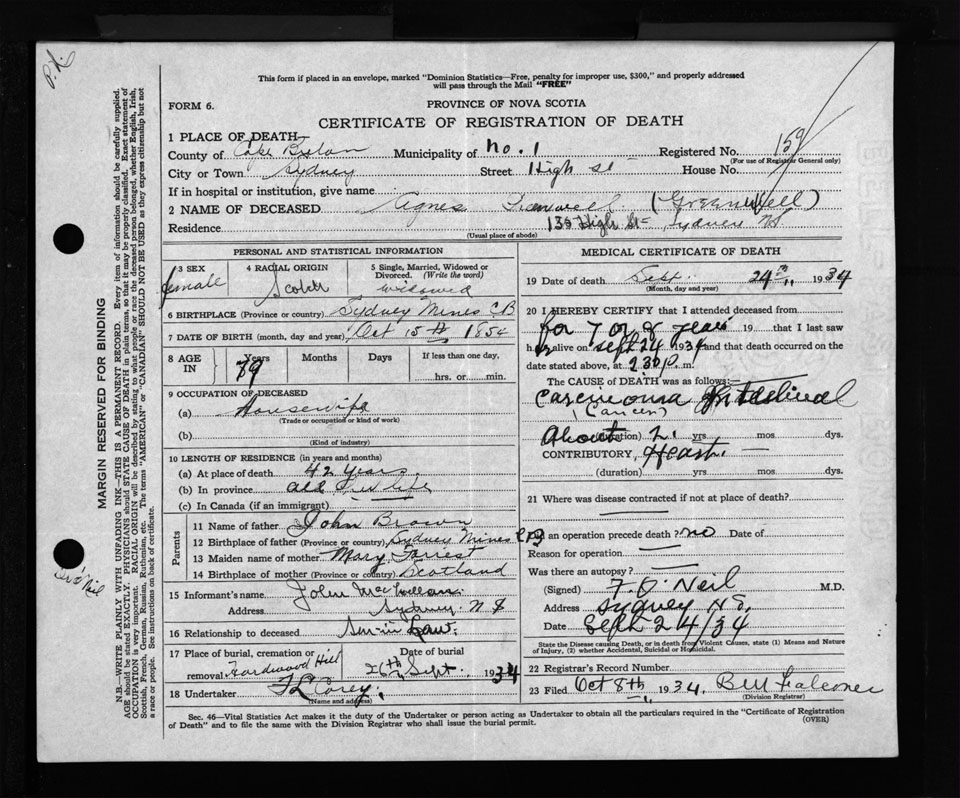 P.X.
This form if placed in an envelope, marked "Dominion Statistics—Free, penalty for improper use, $300," and properly addressed
will pass through the Mail "FREE"
FORM 6.
PROVINCE OF NOVA SCOTIA
CERTIFICATE OF REGISTRATION OF DEATH
1 PLACE OF DEATH
County of Cape Breton Municipality of No. 1 Registered No. 159
(For use of Registrar General only)
City or Town Sydney Street High St House No.
If in hospital or institution, give name
2 NAME OF DECEASED Agnes (Greenwell)
Residence 135 High St Sydney NS
(Usual place of abode)
PERSONAL AND STATISTICAL INFORMATION
3 SEX female
4 RACIAL ORIGIN Scotch
5 Single, Married, Widowed or Divorced. (Write the word) Widowed
6 BIRTHPLACE (Province or country) Sydney Mines CB
7 DATE OF BIRTH (month, day and year) Oct 15th 1854
8 AGE IN Years 79 Months Days If less than one day, hrs. or min.
9 OCCUPATION OF DECEASED
(a) Housewife
(Trade or occupation or kind of work)
(b)
(Kind of industry)
10 LENGTH OF RESIDENCE (in years and months)
(a) At place of death 42 years
(b) In province all her life
(c) In Canada (if an immigrant)
Parents
11 Name of father John Brown
12 Birthplace of father (Province or country) Sydney Mines CB
13 Maiden name of mother Mary Forrest
14 Birthplace of mother (Province or country) Scotland
15 Informant's name John McLellan
Address Sydney N S
16 Relationship to deceased Son-in Law
17 Place of burial, cremation or removal Hardwood Hill Date of burial 26th Sept. 1934
18 Undertaker F L Corey
(Name and address)
MEDICAL CERTIFICATE OF DEATH
19 Date of death Sept. 24th 1934
(Month, day and year)
20 I HEREBY CERTIFY that I attended deceased from
for 7 or 8 years 19 that I last saw
her alive on Sept 24 1934 and that death occurred on the
date stated above, at 2.30 p. m.
The CAUSE of DEATH was as follows:—
Carcinoma Intestinal
(Cancer)
About (duration) 2 yrs mos dys.
CONTRIBUTORY, Heart
(duration) yrs. mos. dys.
21 Where was disease contracted if not at place of death?
Did an operation precede death? no Date of
Reason for operation
Was there an autopsy?
(Signed) F. O'Neil M.D.
Address Sydney N S.
Date Sept 24/34
State the Disease causing Death, or in death from Violent Causes, state (1) Means and Nature
of Injury, (2) whether Accidental, Suicidal or Homicidal.
22 Registrar's Record Number
23 Filed Oct 8th 1934. B M Falconer
(Division Registrar)
Sec. 46—Vital Statistics Act makes it the duty of the Undertaker or person acting as Undertaker to obtain all the particulars required in the "Certificate of Registration
of Death" and to file the same with the Division Registrar who shall issue the burial permit.
(OVER)
MARGIN RESERVED FOR BINDING
N.B.—WRITE PLAINLY WITH UNFADING INK—THIS IS A PERMANENT RECORD. Every item of information should be carefully supplied.
AGE should be stated EXACTLY. PHYSICIANS should STATE CAUSE OF DEATH in plain terms, so that it may be properly classified. Exact statement of
OCCUPATION is very important. RACIAL ORIGIN will be described by stating to what people or race the deceased person belonged, whether English, Irish,
Scottish, French, German, Russian, Ruthenian, etc. The terms "AMERICAN" or "CANADIAN" SHOULD NOT BE USED as they express citizenship but not
a race or people. See instructions on back of certificate.